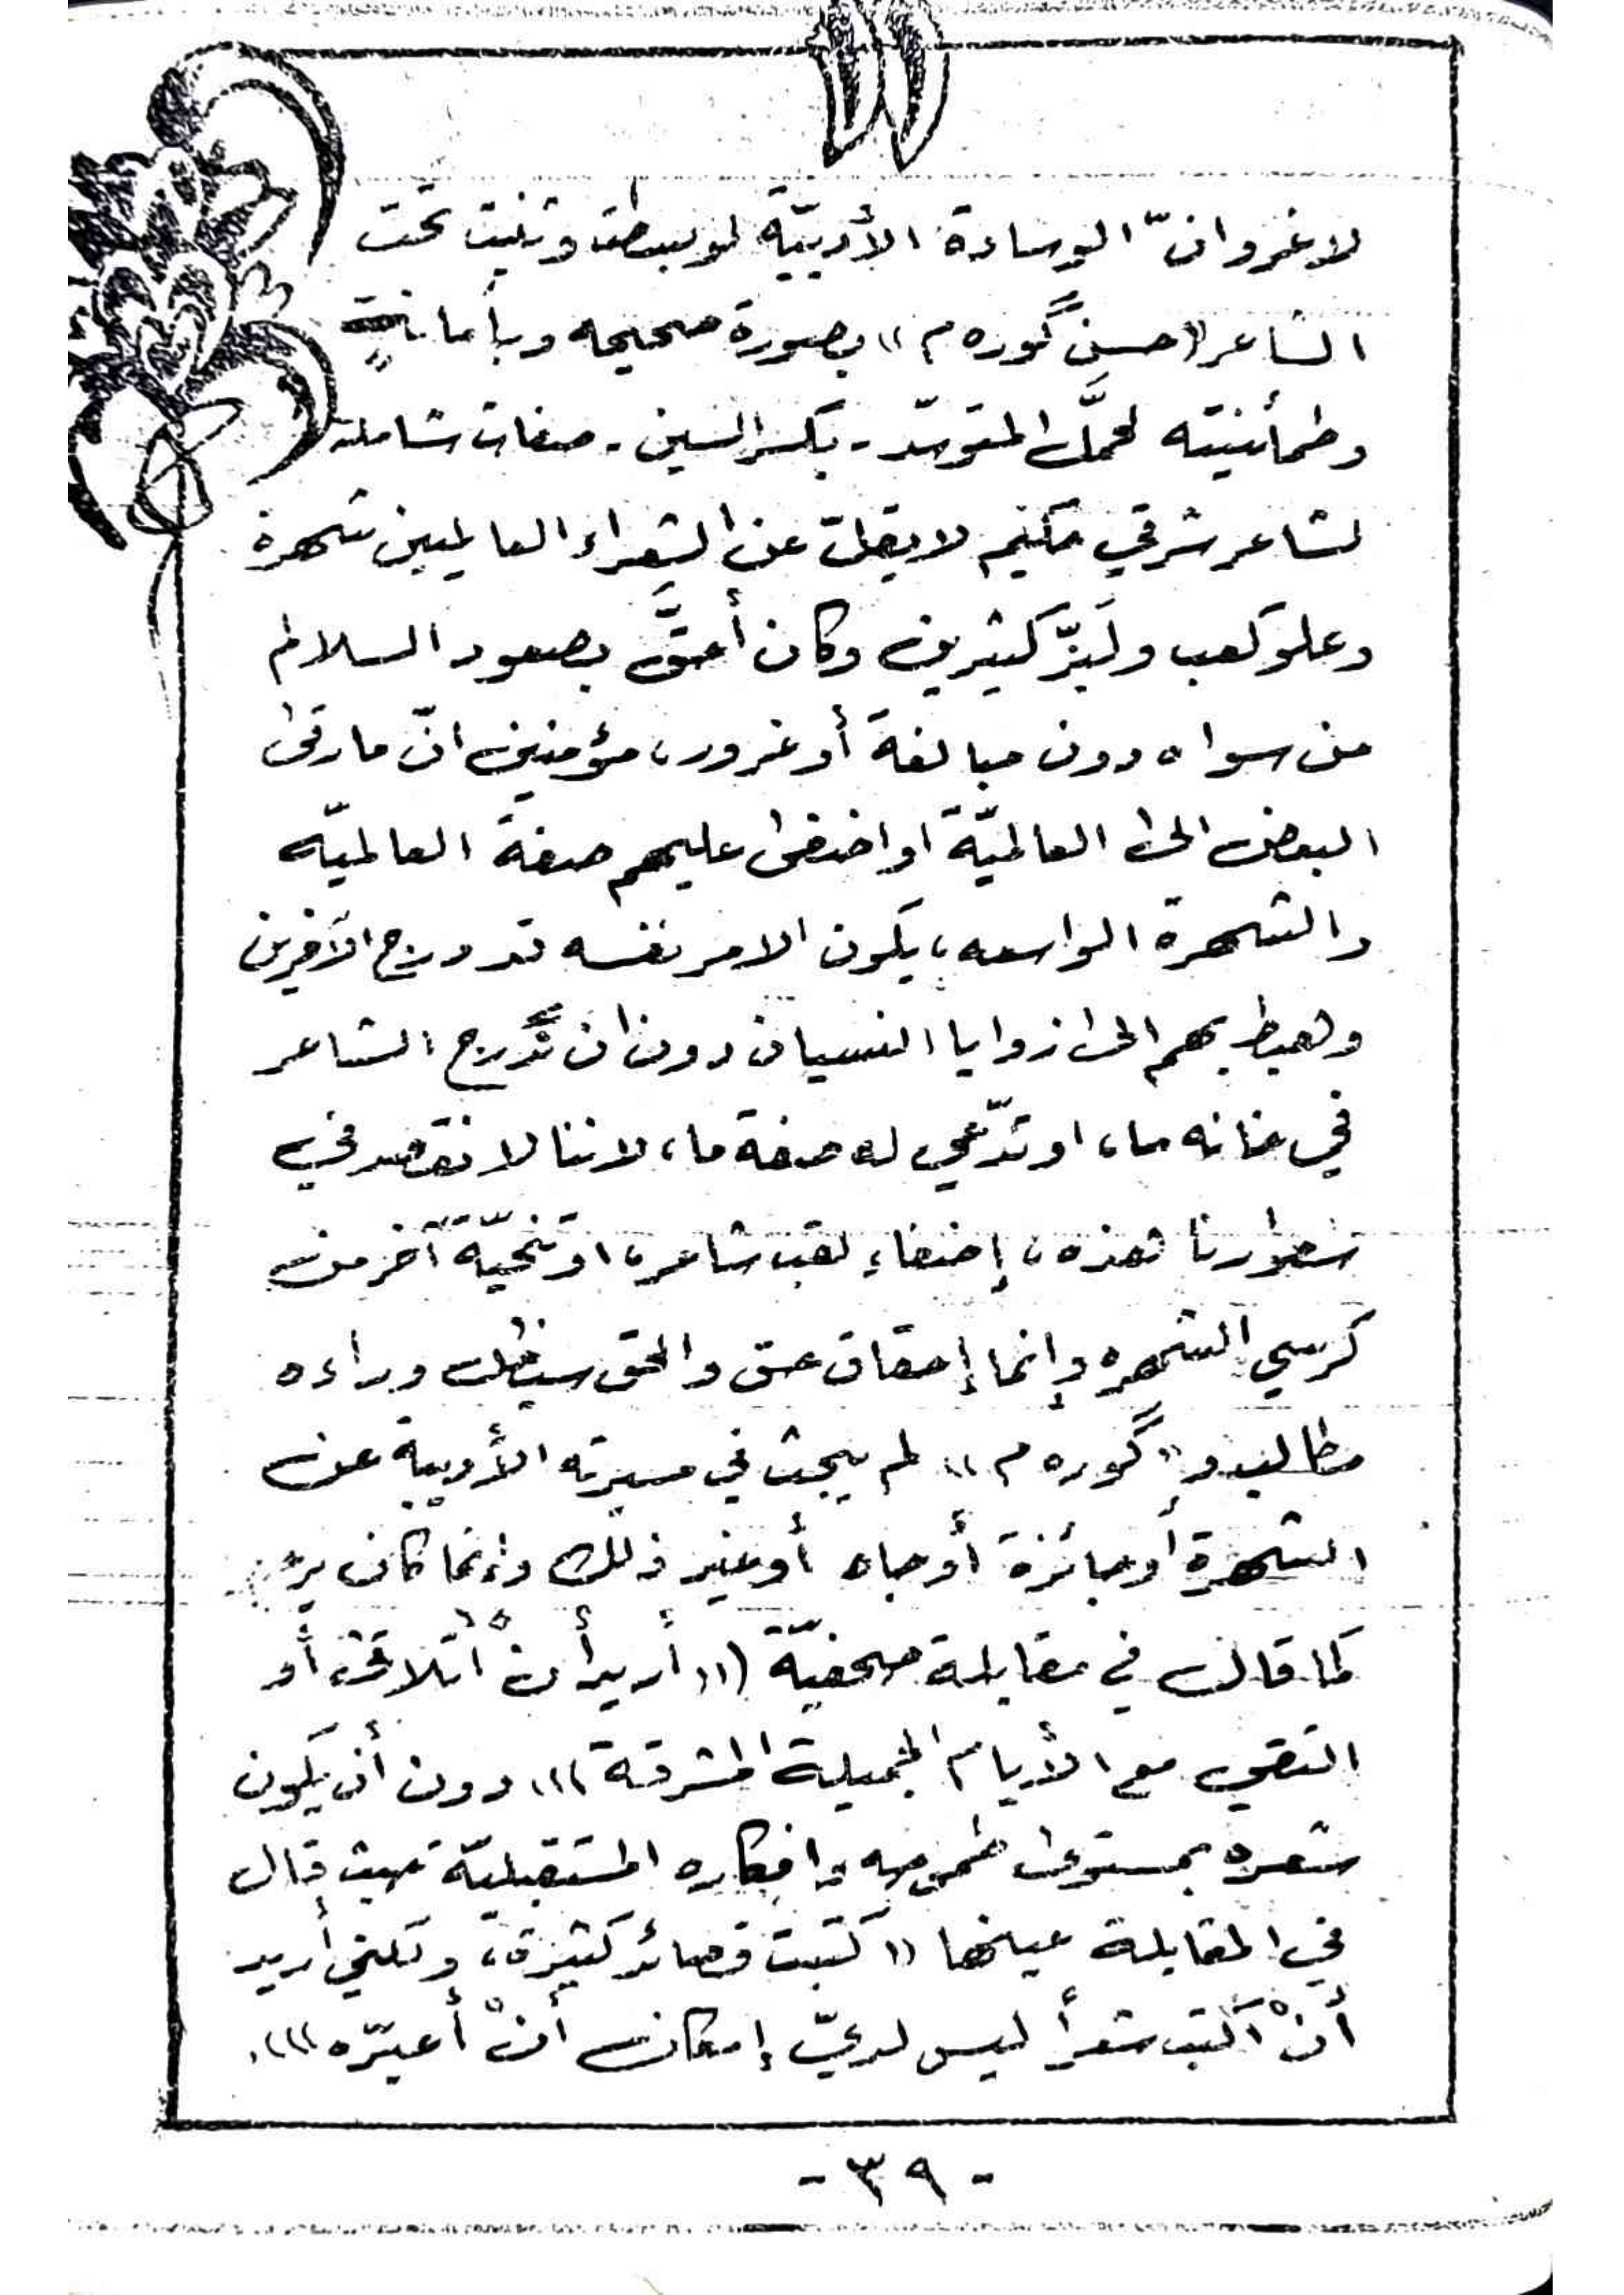 لا غرو انّ الوسادة الأدبيّة لو بسطت وثنيت تحت
الشاعر «حسن گوره م» بصورة صحيحه وبأمانةٍ
وطمأنينته لحمَّل المتوسّد - بكسر السين - صفات شاملة
لشاعر شرقي حكيم لا يقلّ عن الشعراء العالميين شهرة
وعلو كعب ولَبَزّ كثيرين وكان أحقَّ بصعود السلالم
من سواه دون مبالغة أو غرور، مؤمنين انّ ما رقى
البعض الى العالميّة او اضفى عليهم صفة العالميّه
والشهرة الواسعه، يكون الامر نفسه قد درج الآخرين
وهبط بهم الى زوايا النسيان دون ان ندرج الشاعر
في خانه ما، او ندّعي له صفة ما، لاننا لا نقصد في
سطورنا هذه، إضفاء لقب شاعر، او تنحيّة آخر من
كرسي الشهره وإنما إحقاق حق والحق سيظل وراءه
مطالب و«گوره م» لم يبحث في مسيرته الأدبية عن
الشهرة أو جائزة أو جاه أو غير ذلك وإنما كان يرى
كما قال في مقابلة صحفيّة ((أريد أن أتلاقى أو
التقي مع الأيام الجميلة المشرقة))) دون أن يكون
شعره بمستوى طموحه وافكاره المستقبليّة حيث قال
في المقابلة عينها ((كتبت قصائد كثيرة، ولكني أريد
أنْ أكتب شعراً ليس لديّ إمكان أنْ أعبّره))).
- ٣٩ -